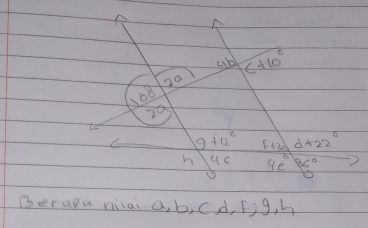 4b c+10°
108 2a
2a
g+12° f+2 d+22°
h 4e 4e° 96°
Berapa nilai a, b, c, d, f, g, h